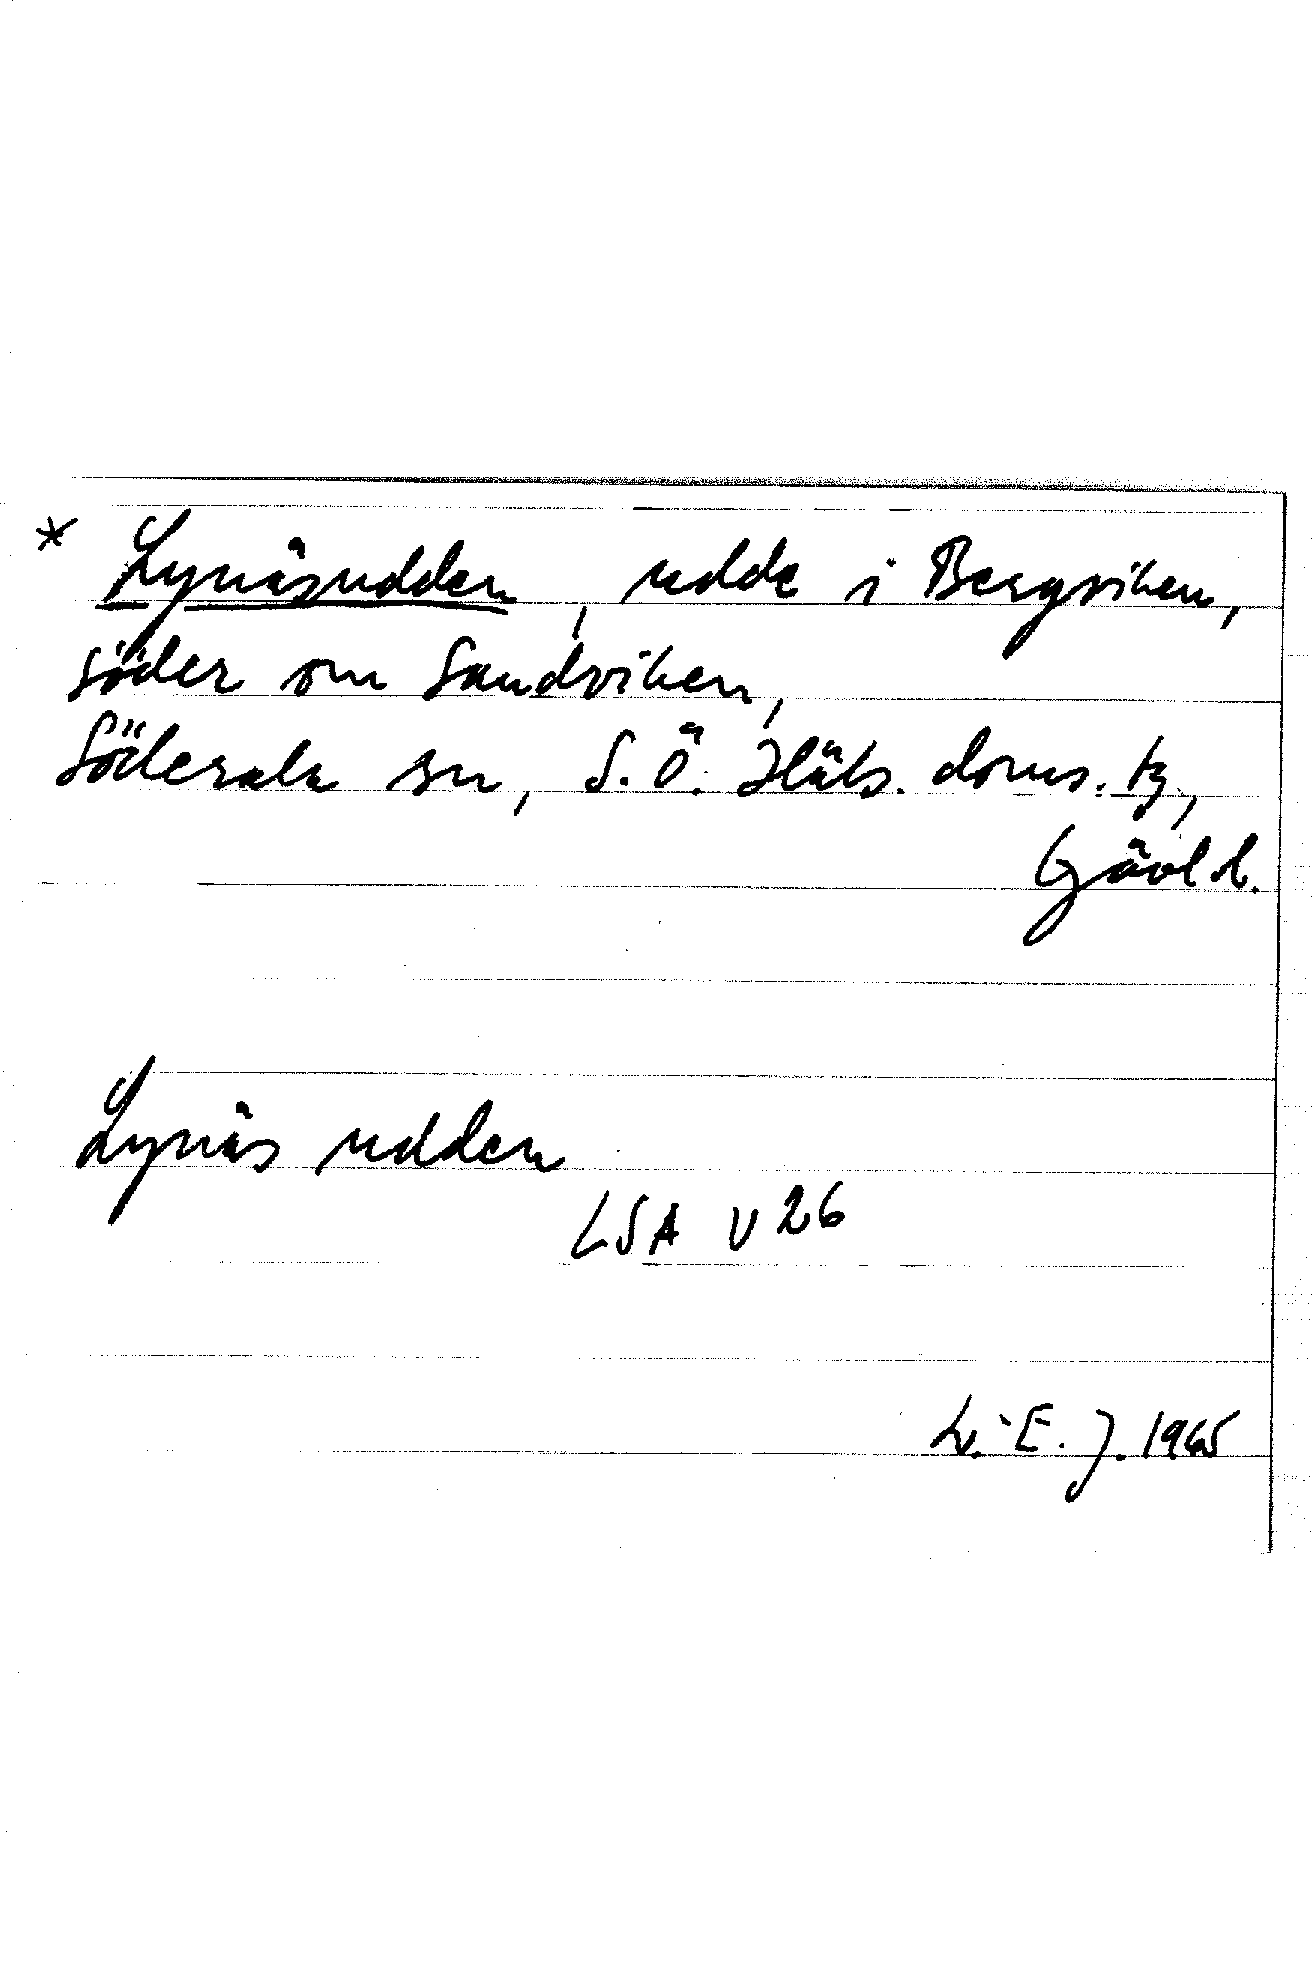 * Lynäsudden, udde i Bergviken,
söder om Sandviken,
Söderala sn, S.Ö. Häls. doms. tg,
Gävl. l.
Lynäs udden
LSA V 26
L.-E. J. 1965